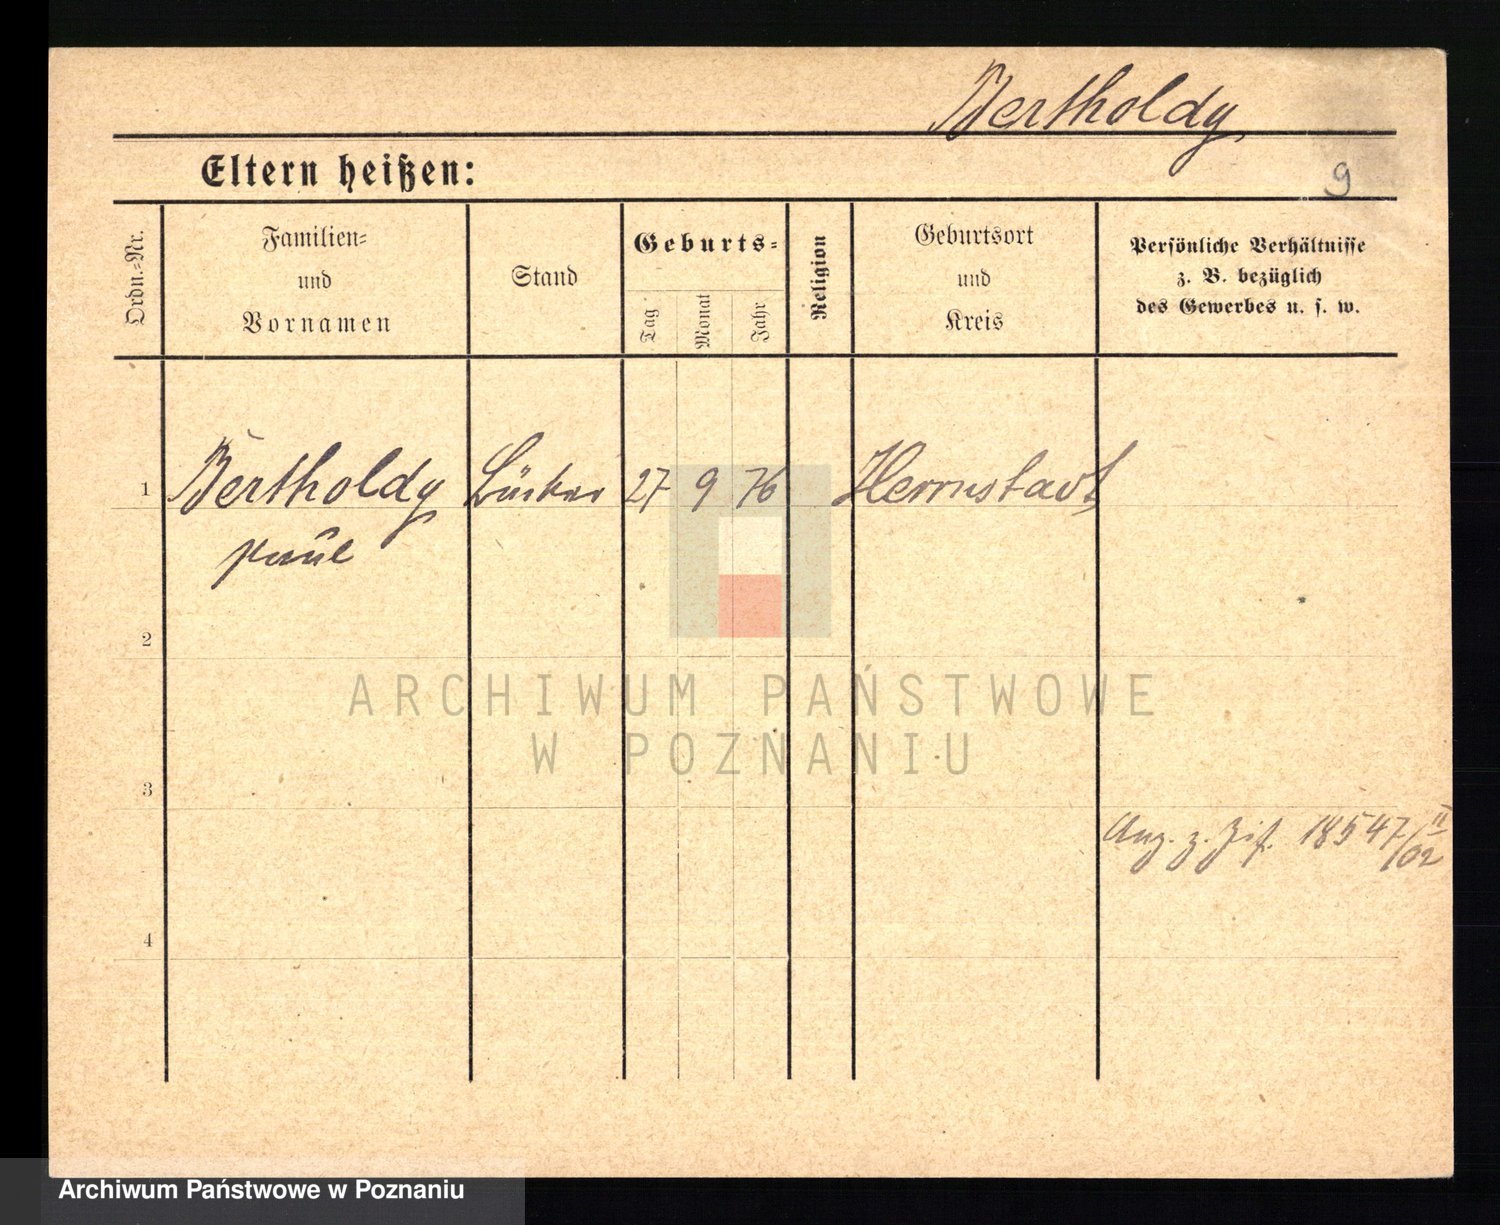 Bertholdy
Eltern heißen:
9
Ordn.-Nr.
Familien-
und
Vornamen
Stand
Geburts-
Tag
Monat
Jahr
Religion
Geburtsort
und
Kreis
Persönliche Verhältnisse
z. B. bezüglich
des Gewerbes u. s. w.
1 Bertholdy 27 9 76 Herrnstadt
Paul
2
ARCHIWUM PAŃSTWOWE
W POZNANIU
3
18547/II
02
4
Archiwum Państwowe w Poznaniu